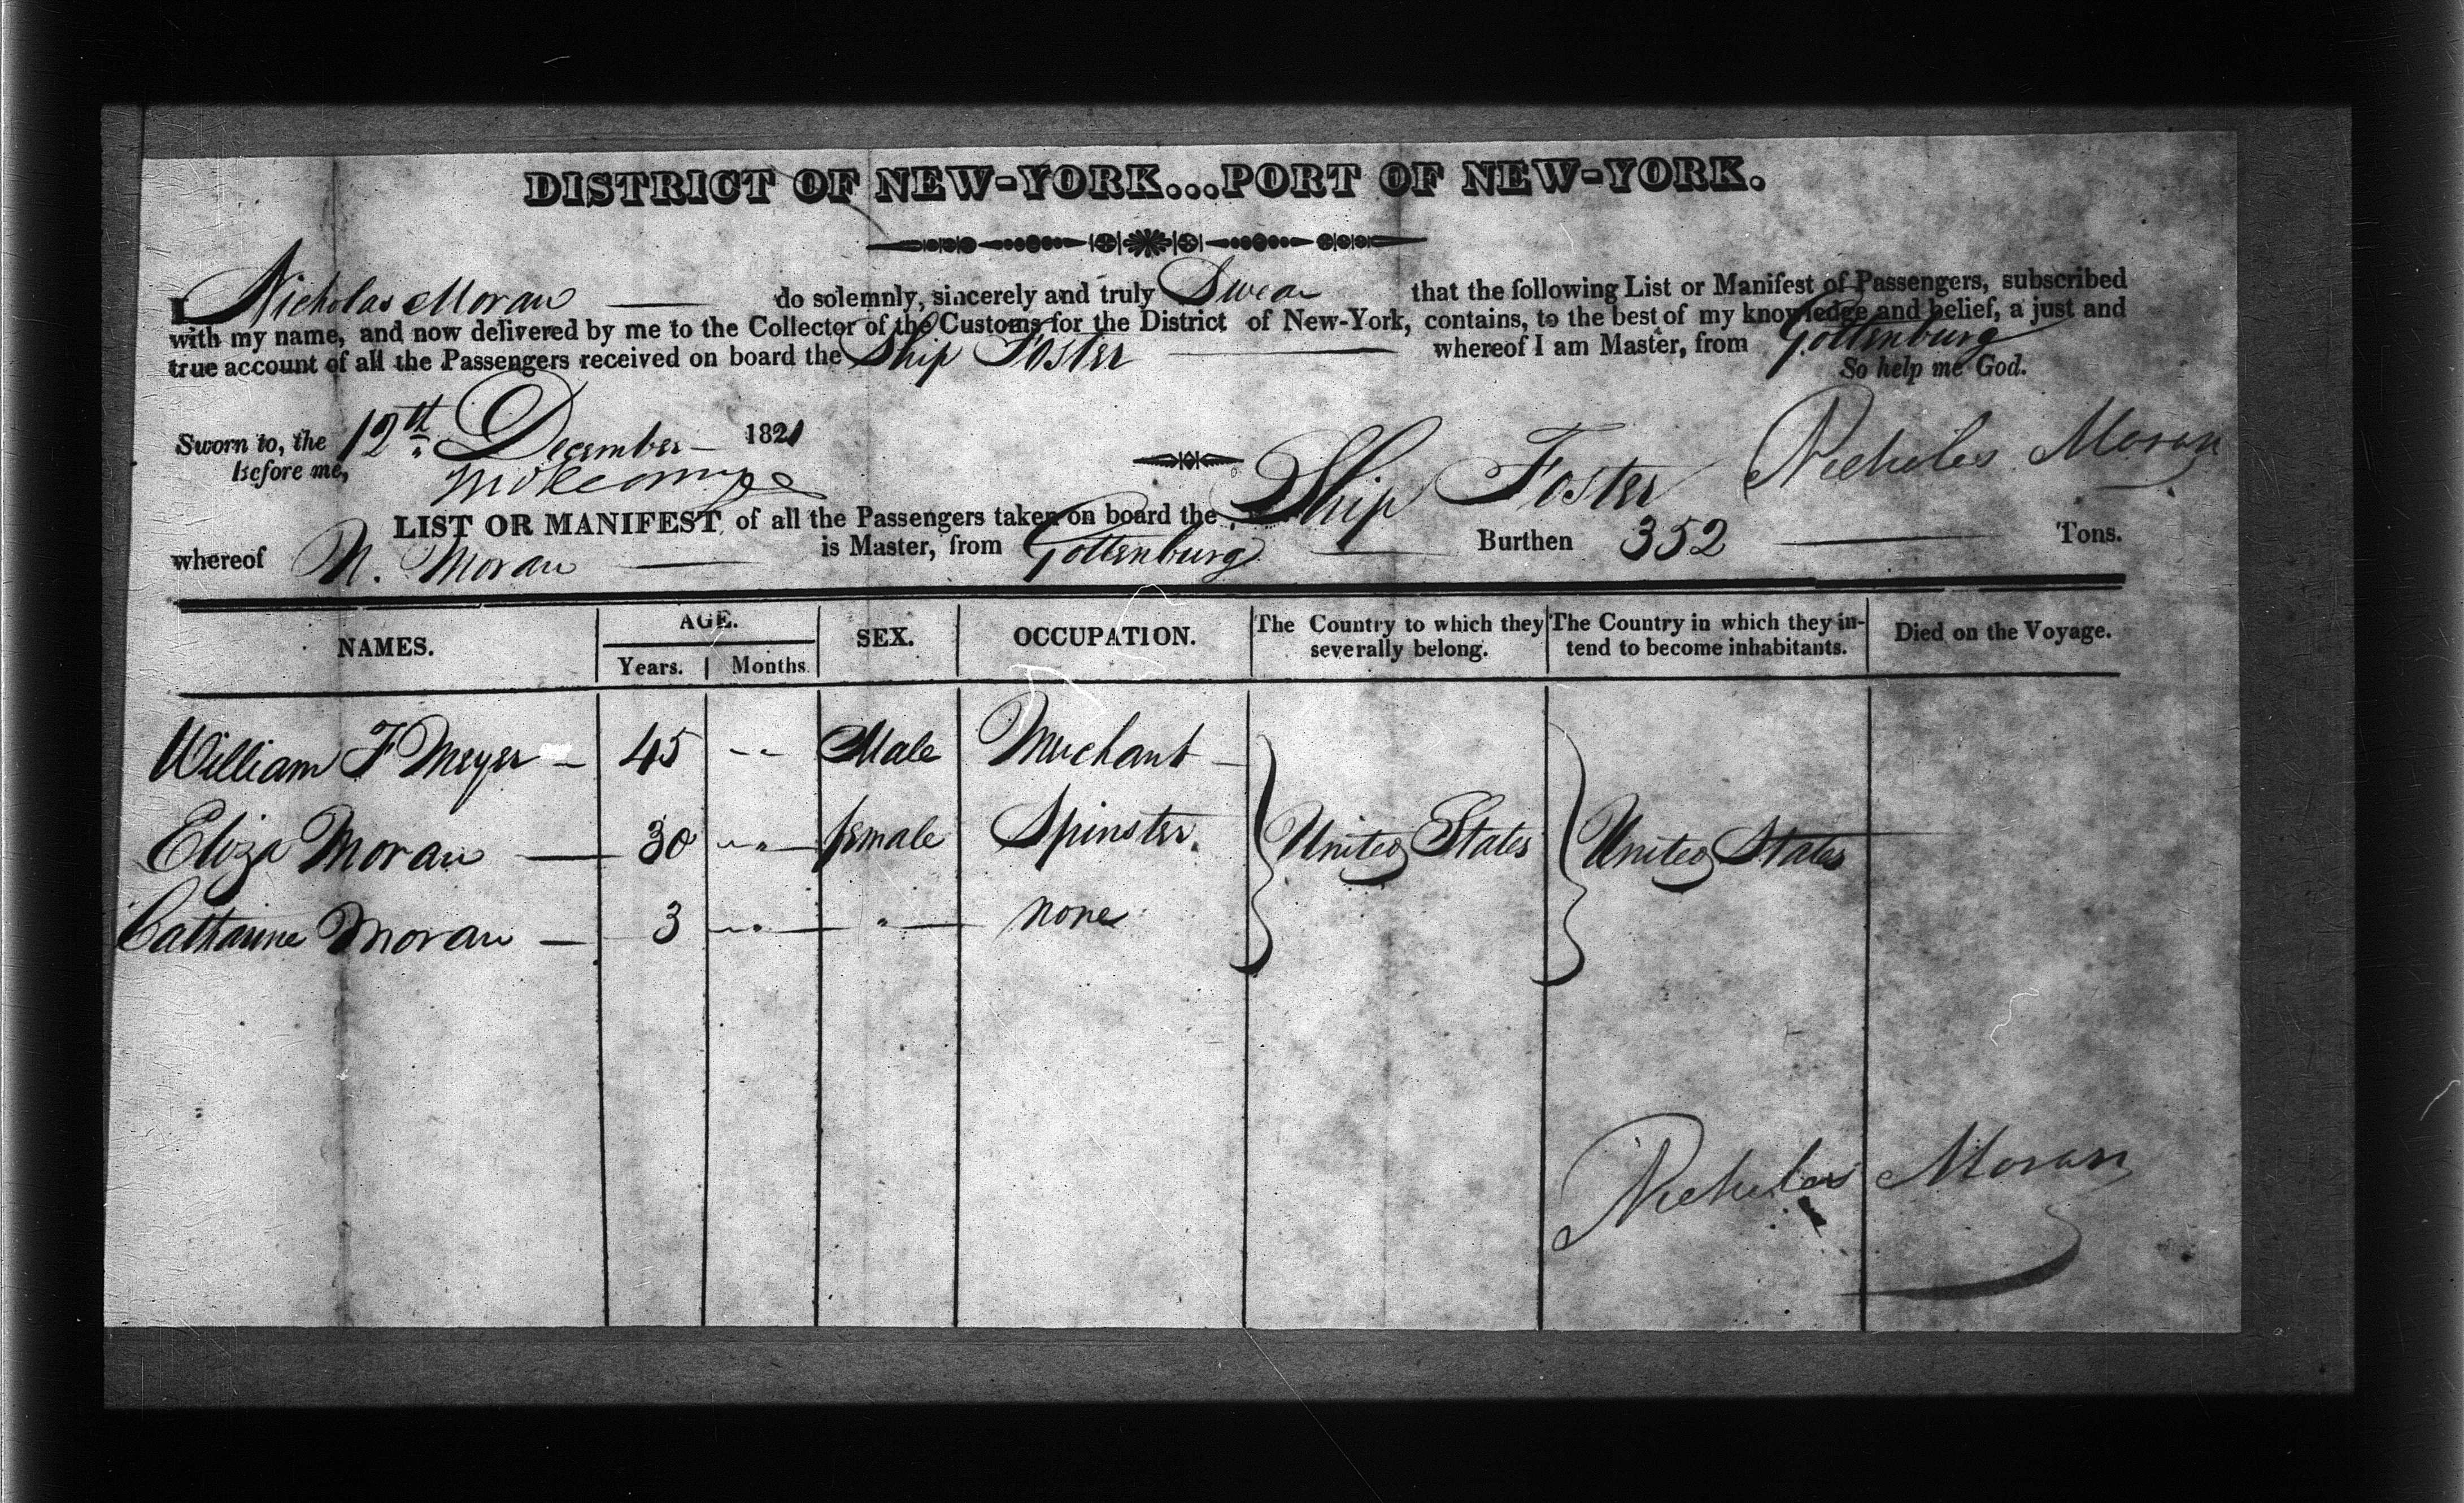 DISTRICT OF NEW-YORK...PORT OF NEW-YORK.
I Nicholas Moran do solemnly, sincerely and truly Swear that the following List or Manifest of Passengers, subscribed
with my name, and now delivered by me to the Collector of the Customs for the District of New-York, contains, to the best of my knowledge and belief, a just and
true account of all the Passengers received on board the Ship Foster whereof I am Master, from Gottenburg
So help me God.
Sworn to, the 12th December 1821
Before me,
Nicholas Moran
LIST OR MANIFEST of all the Passengers taken on board the Ship Foster
whereof N. Moran is Master, from Gottenburg Burthen 352 Tons.
NAMES. AGE. SEX. OCCUPATION. The Country to which they severally belong. The Country in which they intend to become inhabitants. Died on the Voyage.
Years. Months.
William F Meyer 45 " Male Merchant
Eliza Moran 30 " female Spinster. United States United States
Catharine Moran 3 " " none
Nicholas Moran